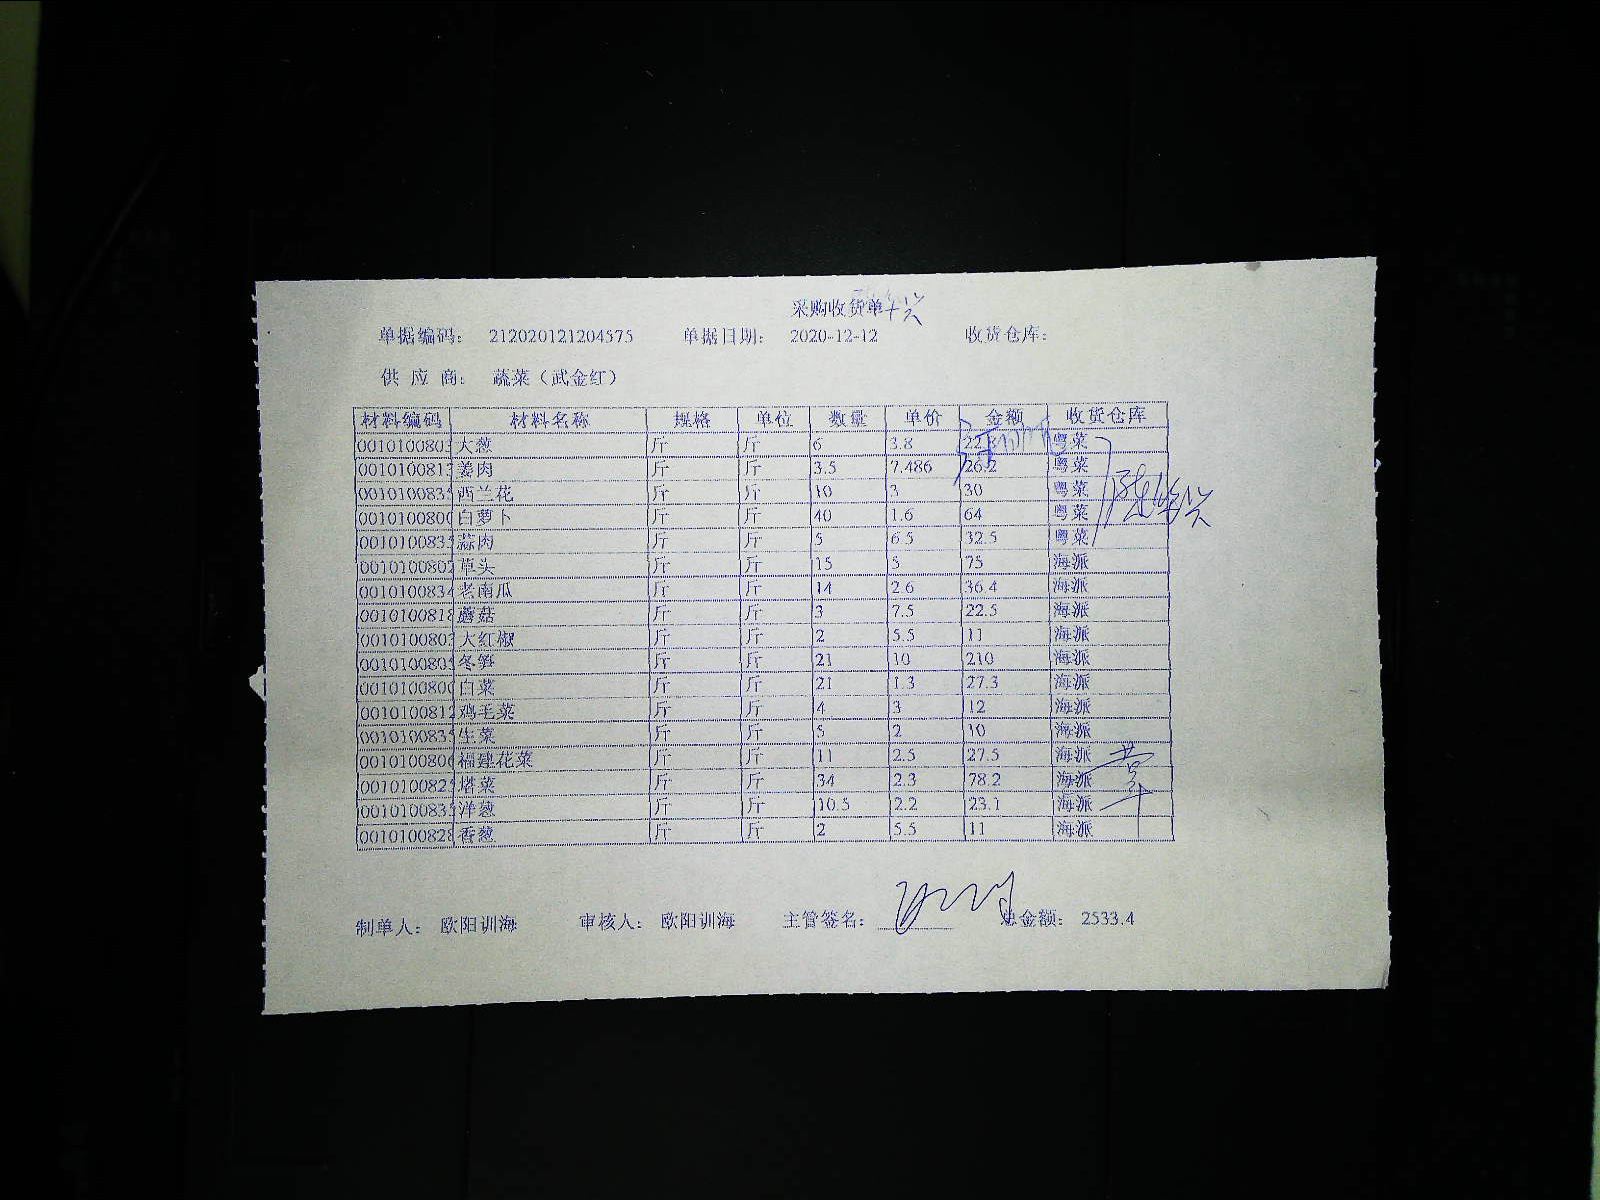 采购收货单
单据编码： 212020121204575 单据日期： 2020-12-12 收货仓库：
供 应 商： 蔬菜（武金红）
材料编码 材料名称 规格 单位 数量 单价 金额 收货仓库
0010100803 大葱 斤 斤 6 3.8 22.8 粤菜
0010100813 姜肉 斤 斤 3.5 7.486 26.2 粤菜
0010100835 西兰花 斤 斤 10 3 30 粤菜
0010100800 白萝卜 斤 斤 40 1.6 64 粤菜
0010100835 蒜肉 斤 斤 5 6.5 32.5 粤菜
0010100802 草头 斤 斤 15 5 75 海派
0010100834 老南瓜 斤 斤 14 2.6 36.4 海派
0010100818 蘑菇 斤 斤 3 7.5 22.5 海派
0010100803 大红椒 斤 斤 2 5.5 11 海派
0010100805 冬笋 斤 斤 21 10 210 海派
0010100800 白菜 斤 斤 21 1.3 27.3 海派
0010100812 鸡毛菜 斤 斤 4 3 12 海派
0010100835 生菜 斤 斤 5 2 10 海派
0010100806 福建花菜 斤 斤 11 2.5 27.5 海派
0010100825 塔菜 斤 斤 34 2.3 78.2 海派
0010100835 洋葱 斤 斤 10.5 2.2 23.1 海派
0010100828 香葱 斤 斤 2 5.5 11 海派
制单人： 欧阳训海 审核人： 欧阳训海 主管签名： 总金额： 2533.4